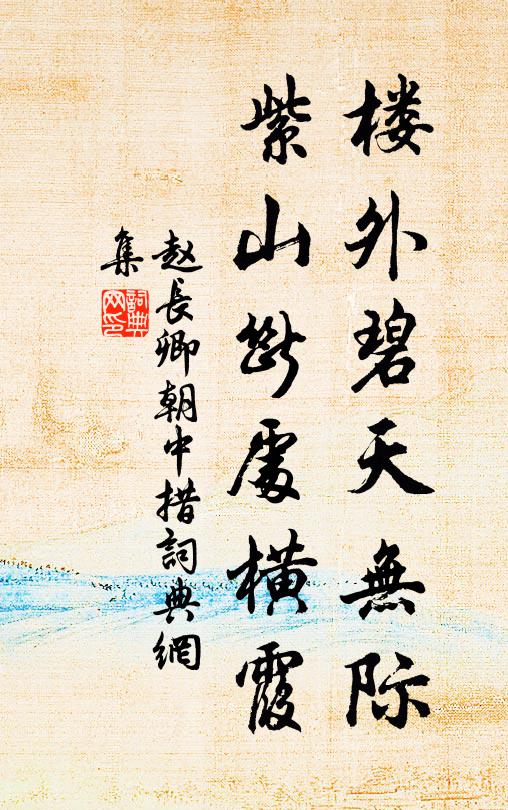 楼外碧天無际
紫山断處橫霞
赵長卿朝中措詞典網
集
詞典
网印